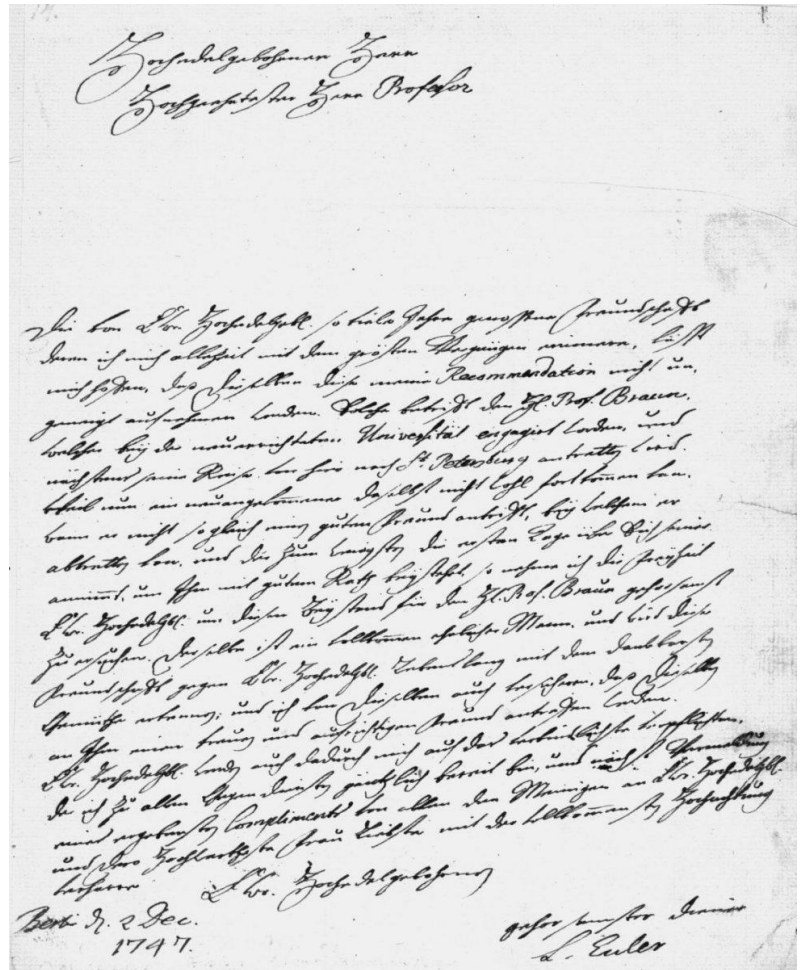 Hochedelgebohrner Herr
Hochgeehrtester Herr Professor
Die von Ew. Hochedelgebl. so viele Jahre genossene Freundschafft
deren ich mich allezeit mit dem grösten Vergnügen erinnere, lässt
mich hoffen, dass Dieselben diese meine Recommendation nicht un-
geneigt aufnehmen werden. Solche betrifft den H. Prof. Braun,
welcher bey der neuerrichteten Universität engagirt worden, und
nächstens seine Reise von hier nach St. Petersburg antretten wird.
Weil nun ein neuangekommener daselbst nicht wohl fortkommen kan,
wann er nicht sogleich einen guten Freund antrifft, bey welchem er
abtretten kan, und der zum wenigsten die ersten Tage über sich seiner
annimmt, um Ihm mit gutem Rath beyzustehen, so nehme ich die Freyheit
Ew. Hochedelgbl. um diesen Beystand für den H. Prof. Braun gehorsamst
zu ersuchen. Derselbe ist ein vollkommen ehrlicher Mann, und wird diese
Freundschafft gegen Ew. Hochedelgbl. Lebenslang mit dem dankbarsten
Gemüthe erkennen; und ich kan Dieselben auch versichern, dass Dieselben
an Ihm einen treuen und aufrichtigen Freund antreffen werden.
Ew. Hochedelgbl. werden auch dadurch mich auf das verbindlichste verpflichten,
der ich zu allen Gegendiensten gäntzlich bereit bin, und nächst Vermeldung
eines ergebensten Compliments von allen den Meinigen an Ew. Hochedelgbl.
und Dero Hochwertheste Frau Liebste mit der vollkommensten Hochachtung
verharre
Ew. Hochedelgebohrnen
Berlin d. 2 Dec.
1747.
gehorsamster Diener
L. Euler